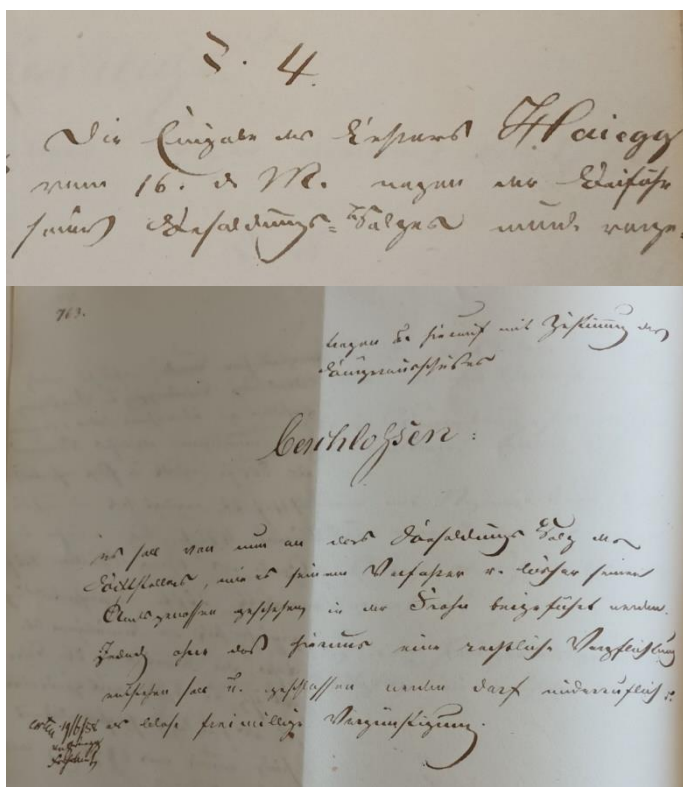 §. 4.
Die Eingabe des Lehrers Haiegg
vom 16. d. M. wegen der Beifuhr
seines Besoldungs-Holzes wurde vorge-
763.
tragen u. hierauf mit Zustimmung des
Bürgerausschußes
Beschloßen:
es soll von nun an das Besoldungs Holz des
Bittstellers, wie es seinem Vorfahrer u. bisher seinen
Amtsgenossen geschehen, in der Frohn beigeführt werden.
Jedoch ohne daß hieraus eine rechtliche Verpflichtung
entstehen soll u. geschlossen werden darf widerruflich u.
als blose freiwillige Vergünstigung.
19/6/58